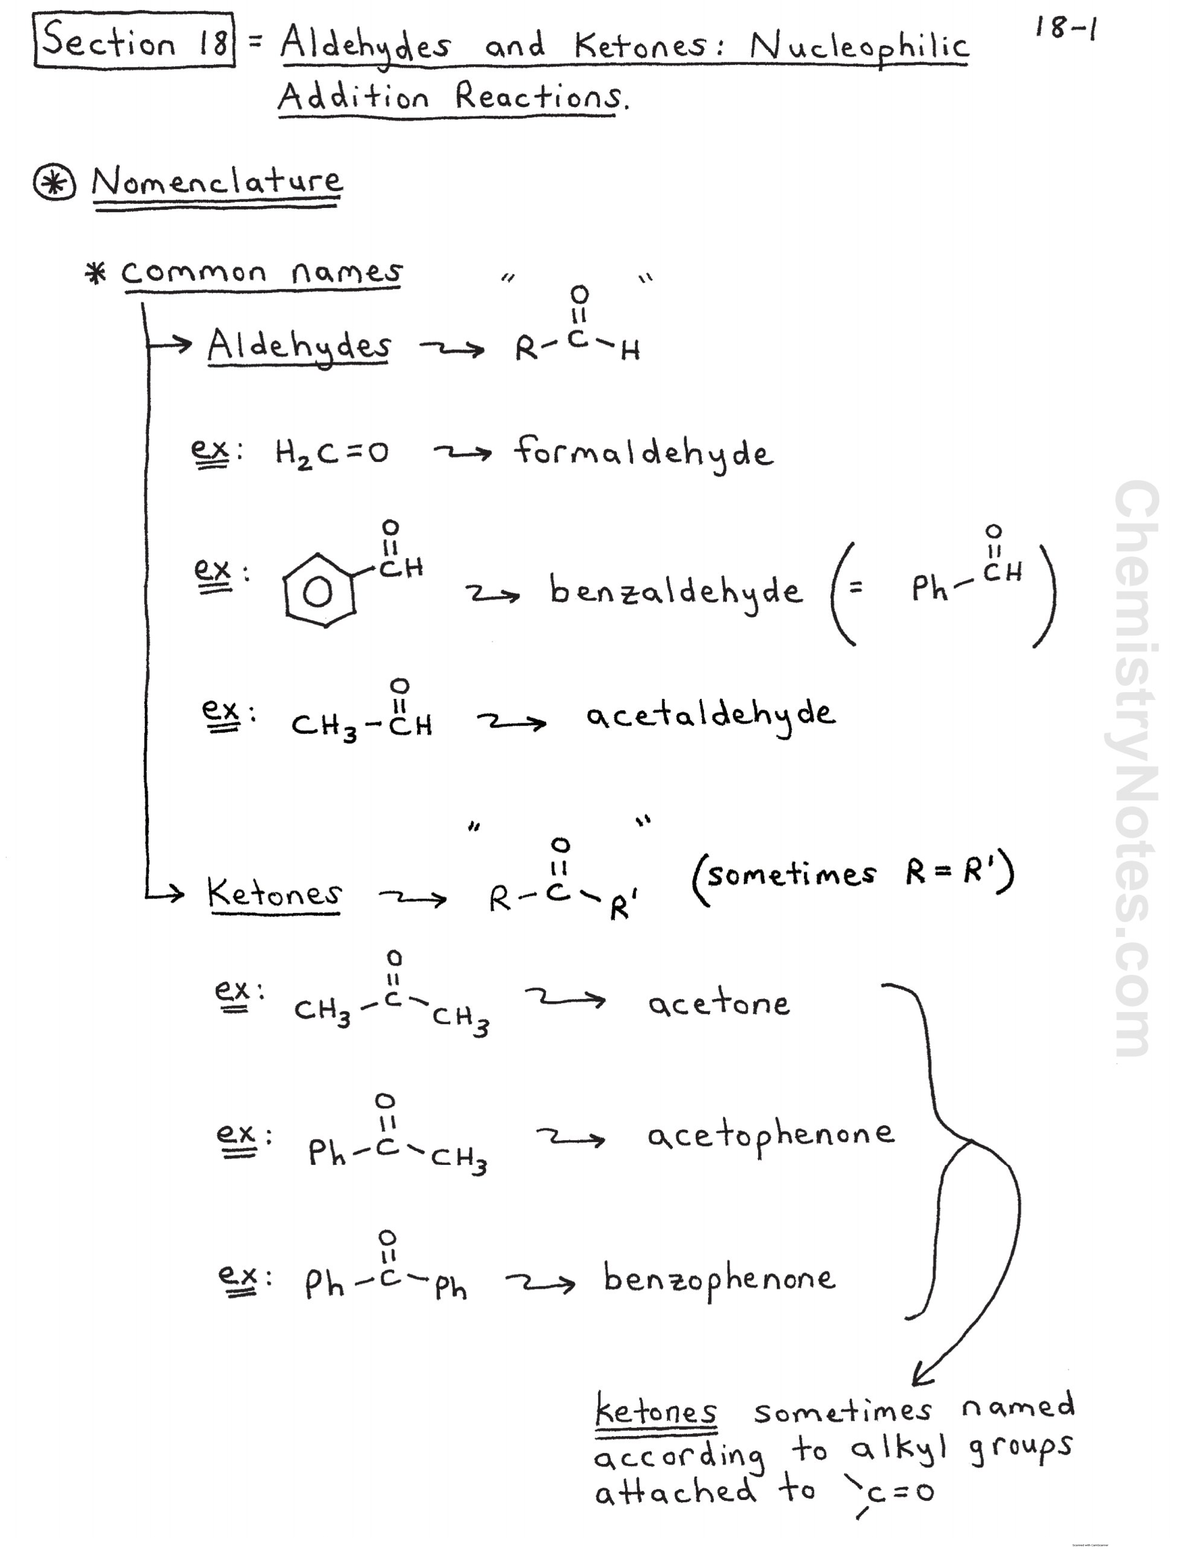 18-1
Section 18 = Aldehydes and Ketones: Nucleophilic
Addition Reactions.
⊛ Nomenclature
* common names
→ Aldehydes ⇝ " R-C(=O)-H "
ex: H₂C=O ⇝ formaldehyde
ex: O CH ⇝ benzaldehyde (= Ph-C(=O)H)
ex: CH₃-C(=O)H ⇝ acetaldehyde
→ Ketones ⇝ " R-C(=O)-R' " (sometimes R=R')
ex: CH₃-C(=O)-CH₃ ⇝ acetone
ex: Ph-C(=O)-CH₃ ⇝ acetophenone
ex: Ph-C(=O)-Ph ⇝ benzophenone
ketones sometimes named
according to alkyl groups
attached to C=O
ChemistryNotes.com